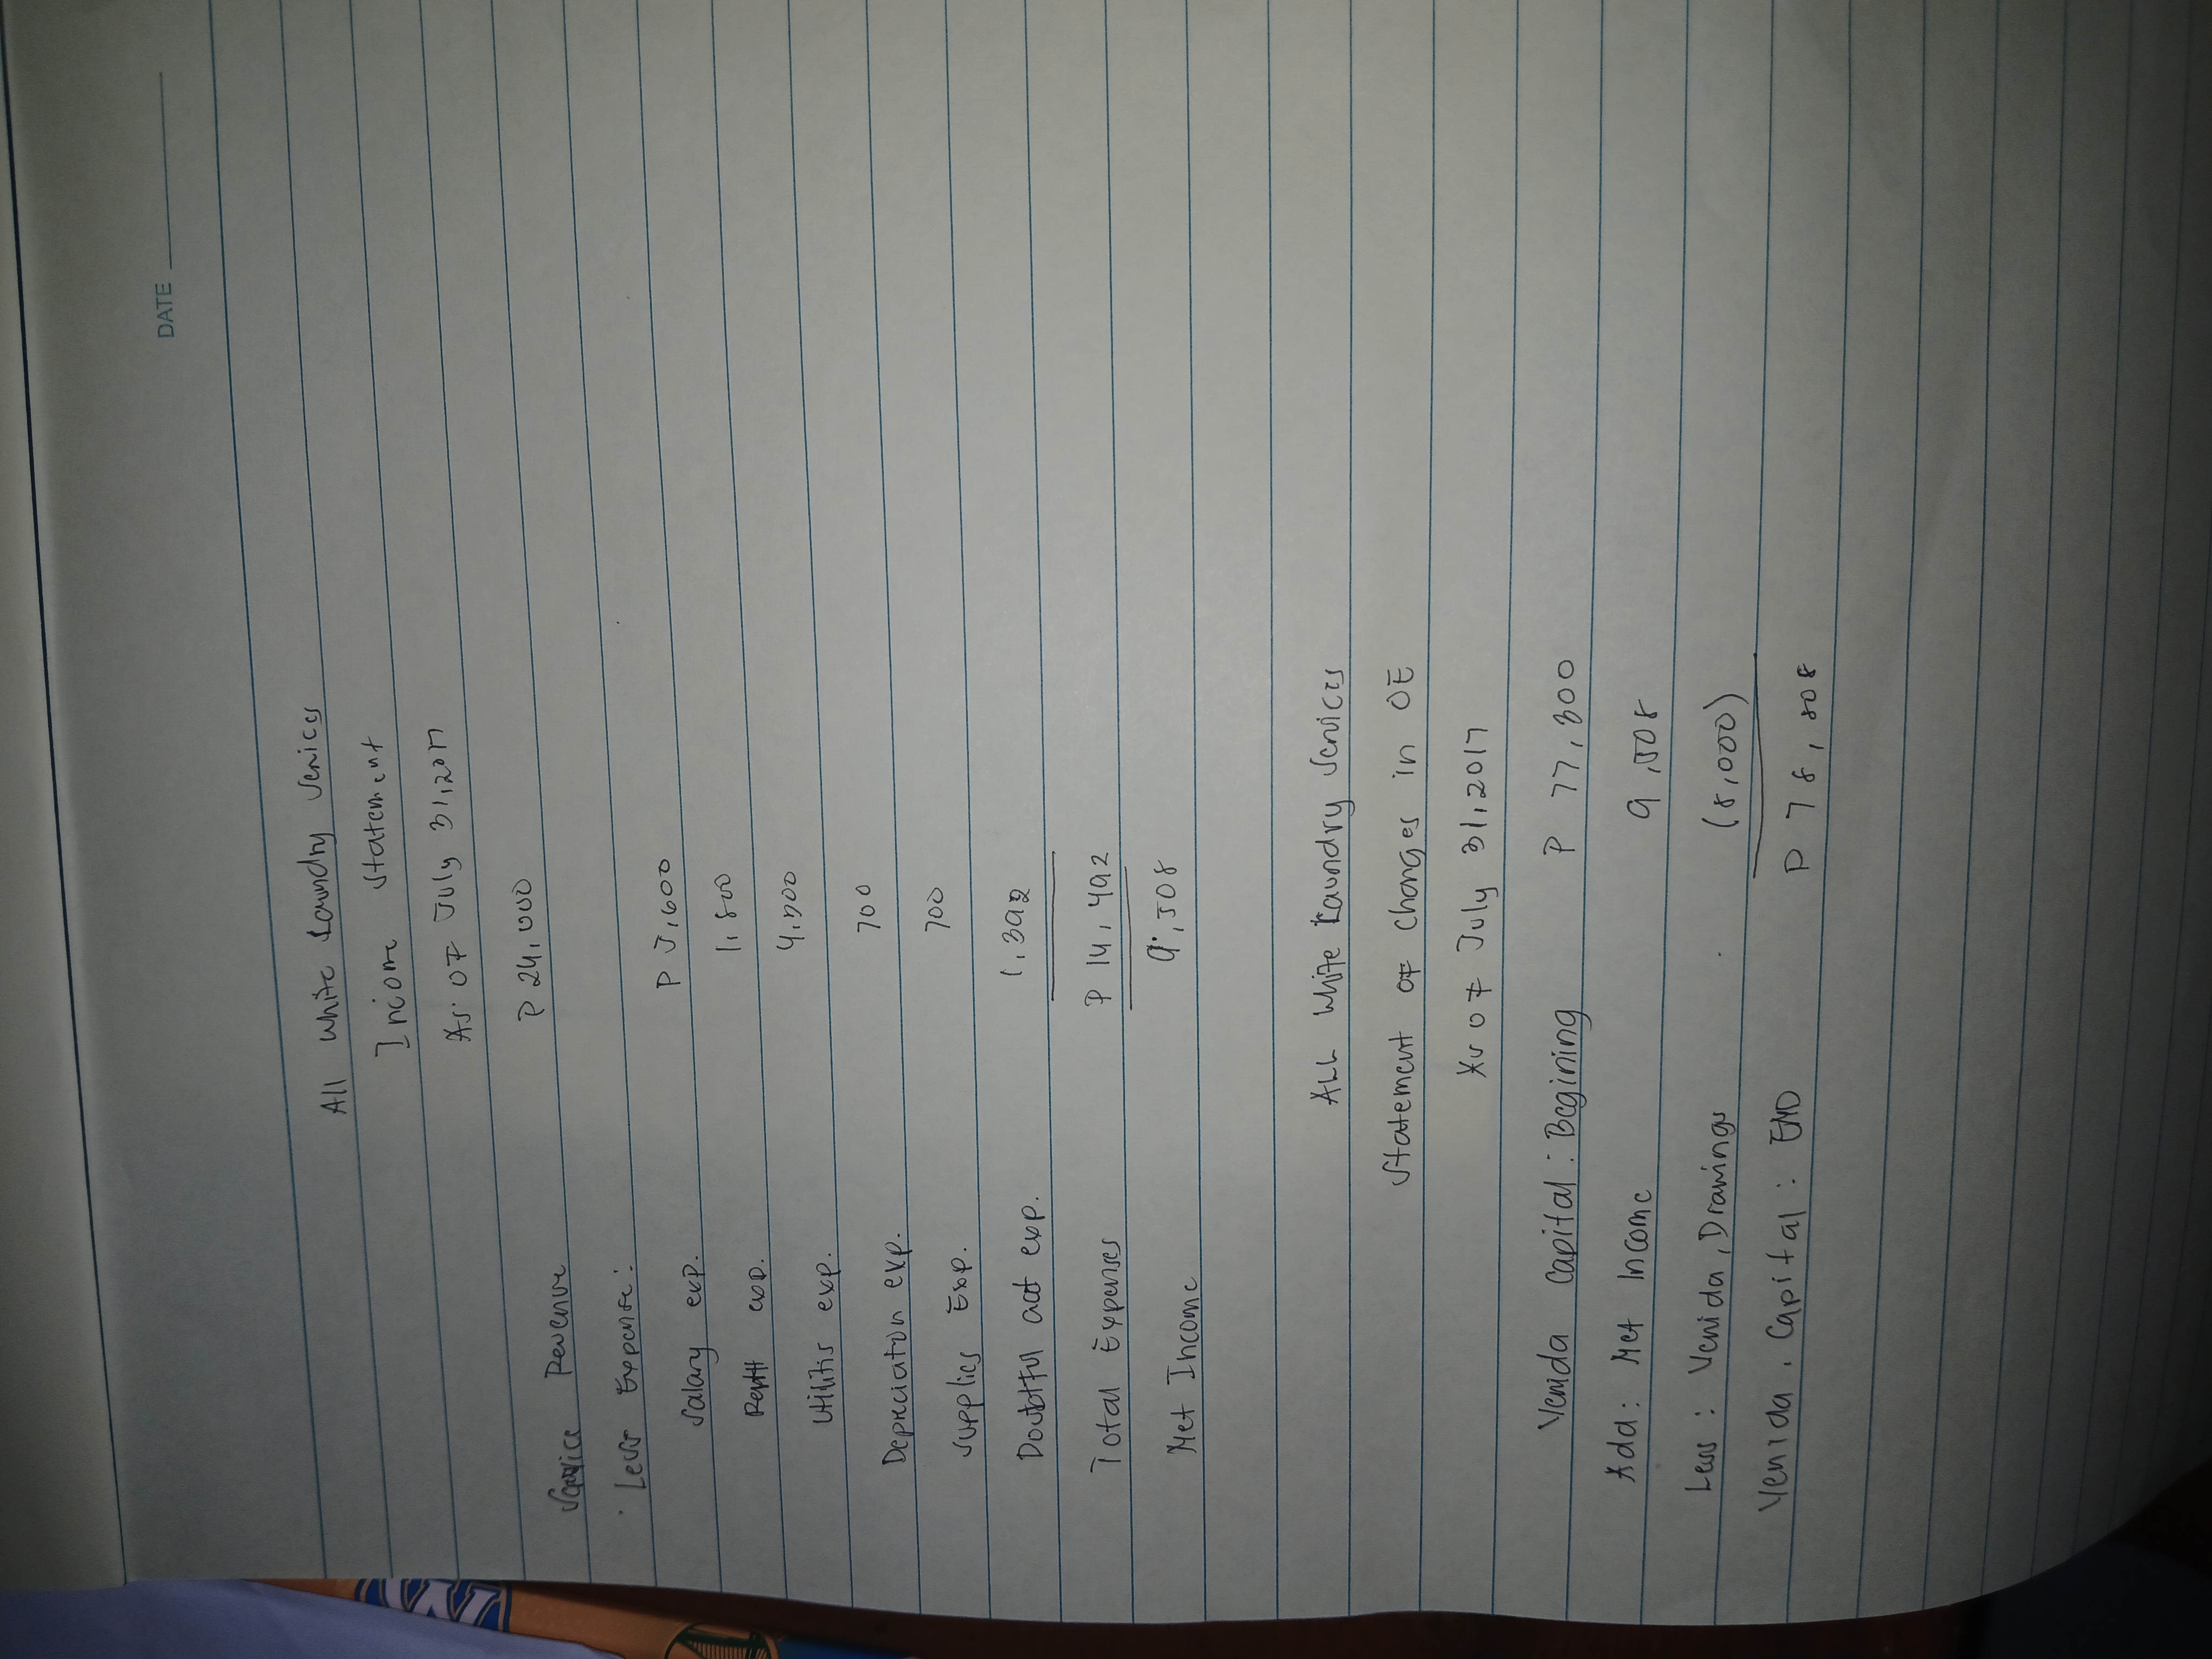 DATE
All White Laundry Services
Income Statement
As of July 31, 2017
Service Revenue P 24,000
Less Expense:
Salary exp. P 5,600
Rent exp. 1,800
Utilitis exp. 4,300
Depreciaton exp. 700
Supplies Exp. 700
Doubtful act exp. 1,392
Total Expenses P 14,492
Net Income 9,508
ALL White Laundry Services
Statement of Changes in OE
As of July 31, 2017
Venida Capital : Begining P 77,300
Add: Net Income 9,508
Less : Venida, Drawings (8,000)
Venida, Capital : END P 78,808